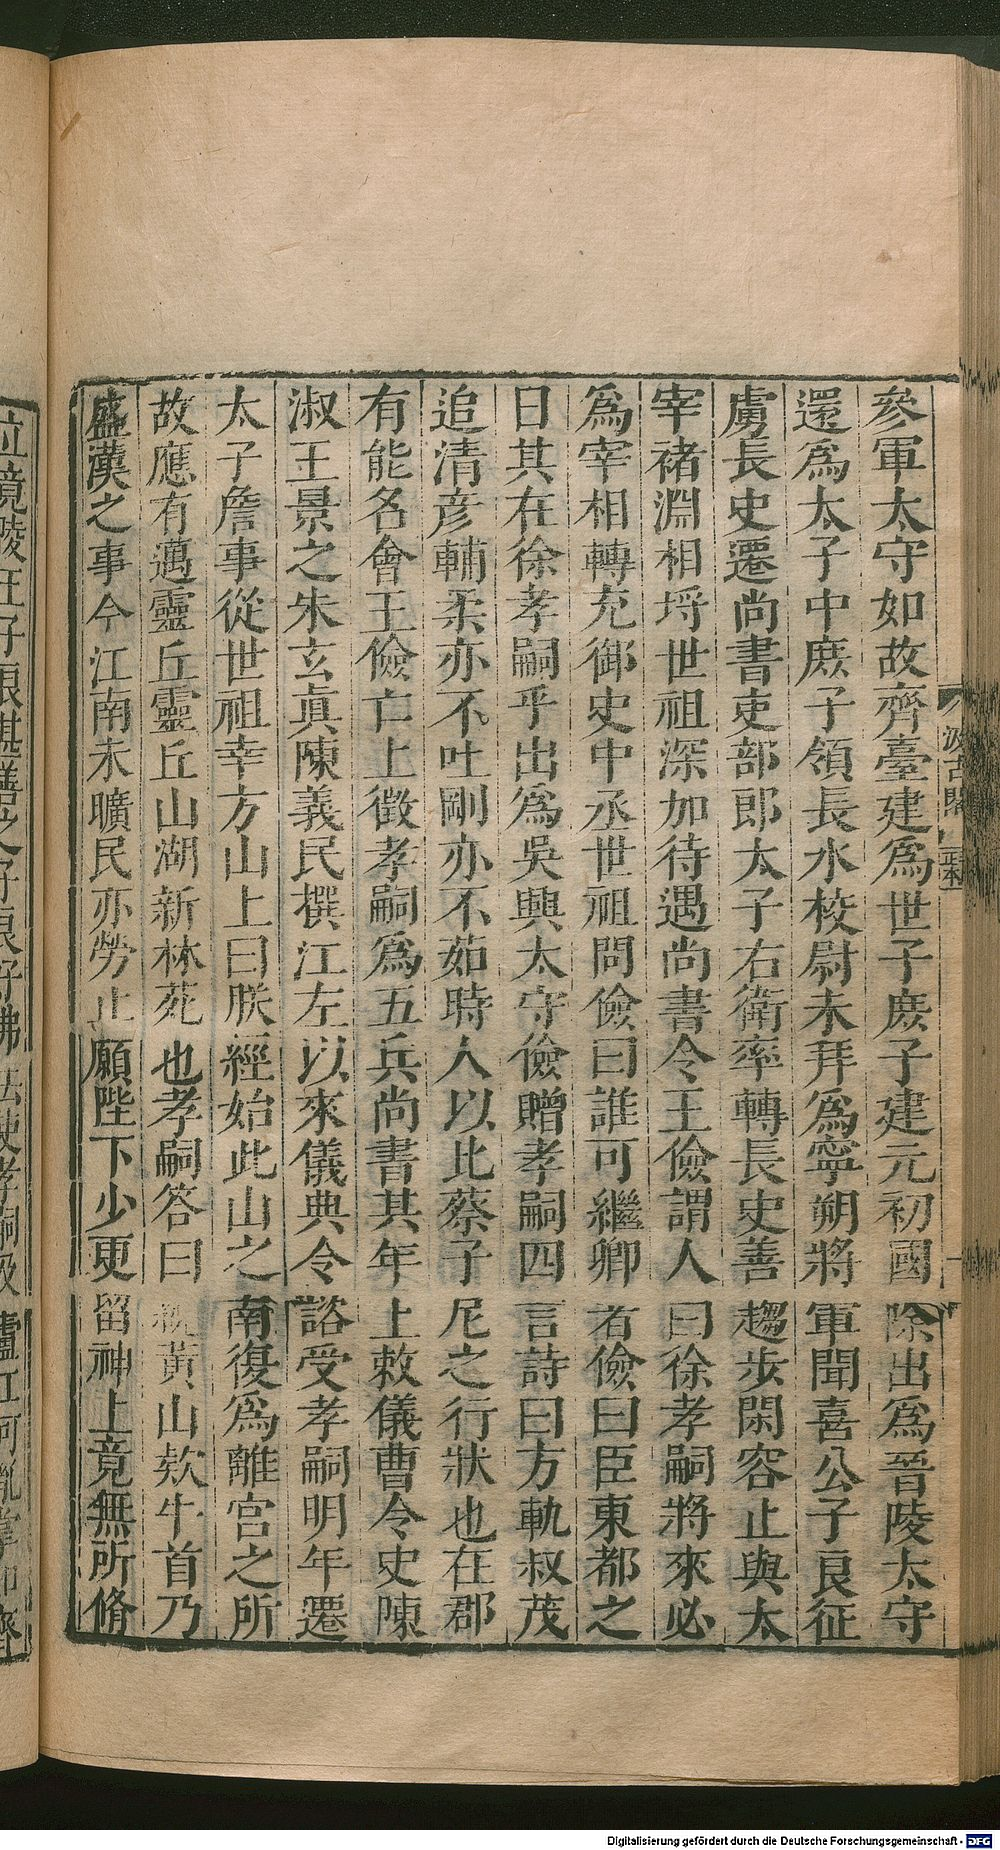 參軍太守如故齊臺建爲世子庶子建元初國除出爲晉陵太守
還爲太子中庶子領長水校尉未拜爲寧朔將軍聞喜公子良征
虜長史遷尚書吏部郎太子右衛率轉長史善趨步閑容止與太
宰褚淵相埒世祖深加待遇尚書令王儉謂人曰徐孝嗣將來必
爲宰相轉充御史中丞世祖問儉曰誰可繼卿者儉曰臣東都之
日其在徐孝嗣乎出爲吳興太守儉贈孝嗣四言詩曰方軌叔茂
追清彦輔柔亦不吐剛亦不茹時人以比蔡子尼之行狀也在郡
有能名會王儉亡上徵孝嗣爲五兵尚書其年上敕儀曹令史陳
淑王景之朱玄眞陳義民撰江左以來儀典令諮受孝嗣明年遷
太子詹事從世祖幸方山上曰朕經始此山之南復爲離宮之所
故應有邁靈丘靈丘山湖新林苑也孝嗣答曰繞黃山欵牛首乃
盛漢之事今江南未曠民亦勞止願陛下少更留神上竟無所脩
汲古閣
毛本
竝竟陵王子良甚善之子良好佛法使孝嗣及廬江何胤掌知齋
Digitalisierung gefördert durch die Deutsche Forschungsgemeinschaft - DFG